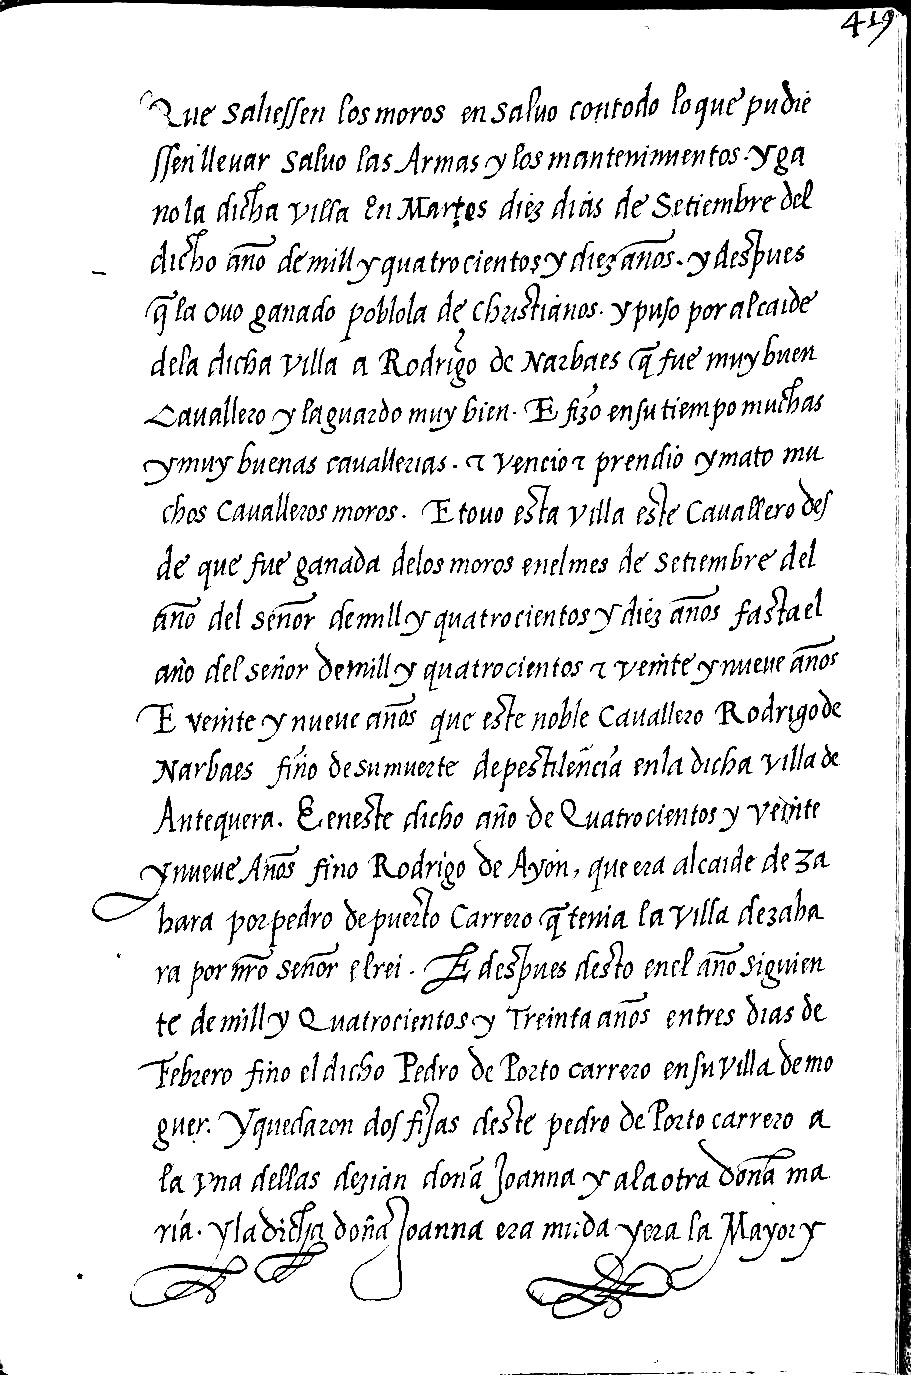 419
Que saliessen los moros en saluo contodo lo que pudie
ssen lleuar saluo las Armas y los mantenimientos. y ga
no la dicha villa En Martes diez dias de Setiembre del
dicho año de mill y quatrocientos y diez años. y despues
q̃ la ouo ganado poblola de christianos. y puso por alcaide
dela dicha villa a Rodrigo de Narbaes q̃ fue muy buen
Cauallero y la guardo muy bien. E fizo en su tiempo muchas
y muy buenas cauallerias. τ vencio τ prendio y mato mu
chos Caualleros moros. E touo esta villa este Cauallero des
de que fue ganada delos moros enel mes de Setiembre del
año del señor de mill y quatrocientos y diez años fasta el
año del señor de mill y quatrocientos τ veinte y nueue años
E veinte y nueue años que este noble Cauallero Rodrigo de
Narbaes fino de su muerte de pestilencia en la dicha villa de
Antequera. E eneste dicho año de Quatrocientos y veinte
y nueue Años fino Rodrigo de Ayon, que era alcaide de za
hara por pedro de puerto Carrero q̃ tenia la villa de zaha
ra por nr̃o señor el rei. E despues desto enel año siguien
te de mill y Quatrocientos y Treinta años en tres dias de
Febrero fino el dicho Pedro de Porto carrero en su villa de mo
guer. Y quedaron dos fijas deste pedro de Porto carrero a
la vna dellas dezian doña Joanna y a la otra doña ma
ría. y la dicha doña Joanna era muda y era la Mayor y